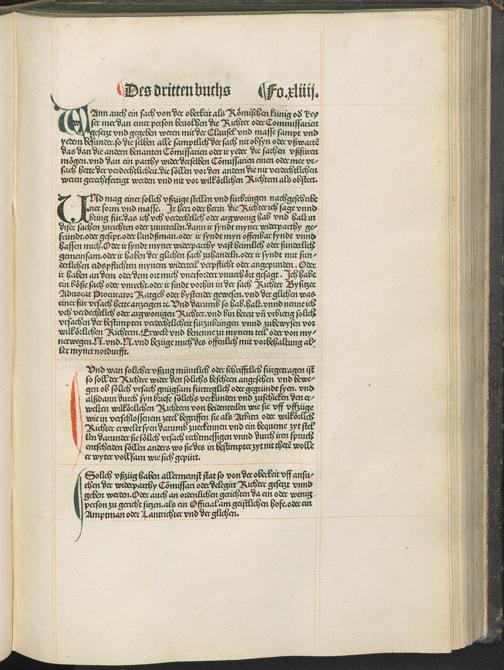 Des dritten buchs Fo. xliiij.
WAnn auch ein sach von der oberkeit als Römischen künig od key
ser mer dan einer person beuolhen die Richter oder Commissarien
gesetzt vnd gegeben weren mit der Clausel vnd masse sampt vnd
yedem besunder. so die selben alle samptlich der sach nit obsyn oder vßwarte
das dan die andern benanten Cömissarien oder ir yeder die sachen vßfüren
mögen. vnd dan ein parthy wider derselben Cömissarien einen oder mee vr-
sach hette der verdechtlicheit. die söllen vor den andern die nit verdechtlich
weren gerechtfertiget werden vnd nit vor wilkörlichen Richtern als obsteet.
UNd mag einer solich vßzüge stellen vnd fürbringen nachgeschribe
ner form vnd masse. Ir herr oder herrn die Richter ich sage vnnd
bring für. das ich vch verdechtlich oder argwonig hab vnd halt in
diser sachen zurichten oder zuurteilen. dann ir syndt myner widerparthy ge-
fründt. oder gesipt. oder landsman. oder ir syndt myn offenbar fyndt vnnd
hassen mich. Oder ir syndt myner widerparthy vast heimlich oder sunderlich
gemeinsam. oder ir haben der glichen sach zuhandeln. oder ir syndt mit sun-
derlichen eidspflichten mynem widerteil verpflicht oder angepunden. Oder
ir haben an dem oder dem ort mich vneruordert vnuerhört gesagt. Ich habe
ein böße sach oder vnrecht. oder ir sindt vorhin in der sach Richter Bysitzer
Aduocat Procurator Ratgeb oder bystender gewesen. vnd der glichen was
einer für vrsach hette anzeigen &c. Vnd darumb so hab. halt. vnnd nenne ich
vch verdechtlich oder argwonigen Richter. vnd bin bereit vn vrbietig solich
vrsachen der bestimpten verdechtlicheit fürzubringen vnnd zubewysen vor
wilkörlichen Richtern. Erwelt vnd benenne zu mynem teil oder von my-
netwegen. N. vnd. N. vnd bezüge mich des offenlich mit vorbehaltung al-
ler myner notdurfft.
Vnd wan solicher vßzug müntlich oder schrifftlich fürgetragen ist
so soll der Richter wider den solichs bescheen angesehen vnd bewe-
gen ob solich vrsach gnügsam fürtreglich oder gegründt syen. vnd
alßdann durch syn briefe solichs verkünden vnd zuschicken den er-
welten wilkörlichen Richtern von beidenteilen wie sie vff vßzüge
wie in verschlossenem zetel begriffen sie als Arbitri oder wilkörlich
Richter erwelt syen darumb zuerkennen vnd ein bequeme zyt stel
len darunder sie solich vrsach rechtmessigen vnnd durch iren spruch
entscheiden söllen anders wo sie des in bestimpter zyt nit theten wolle
er wyter volfarn wie sich gepürt.
Solich vßzüg haben allermeinst stat so von der oberkeit vff ansu-
chen der widerparthy Cömissari oder delegirt Richter gesetzt vnnd
geben werden. Oder auch an ordenlichen gerichten da ein oder wenig
person zu gericht sitzen. als ein Official am geistlichen hofe. oder ein
Amptman oder Lantrichter vnd der glichen.